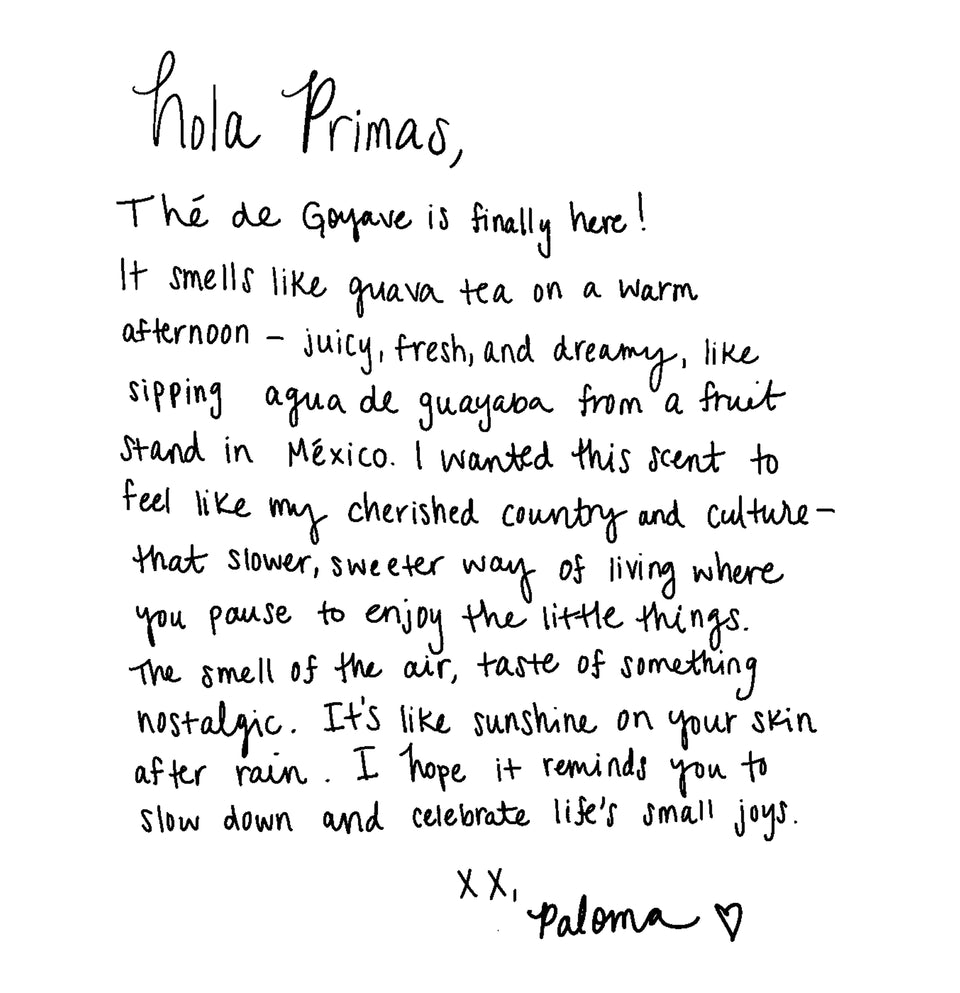 hola Primas,
Thé de Goyave is finally here!
It smells like guava tea on a warm
afternoon – juicy, fresh, and dreamy, like
sipping agua de guayaba from a fruit
stand in México. I wanted this scent to
feel like my cherished country and culture –
that slower, sweeter way of living where
you pause to enjoy the little things.
The smell of the air, taste of something
nostalgic. It's like sunshine on your skin
after rain. I hope it reminds you to
slow down and celebrate life's small joys.
XX,
Paloma ♡